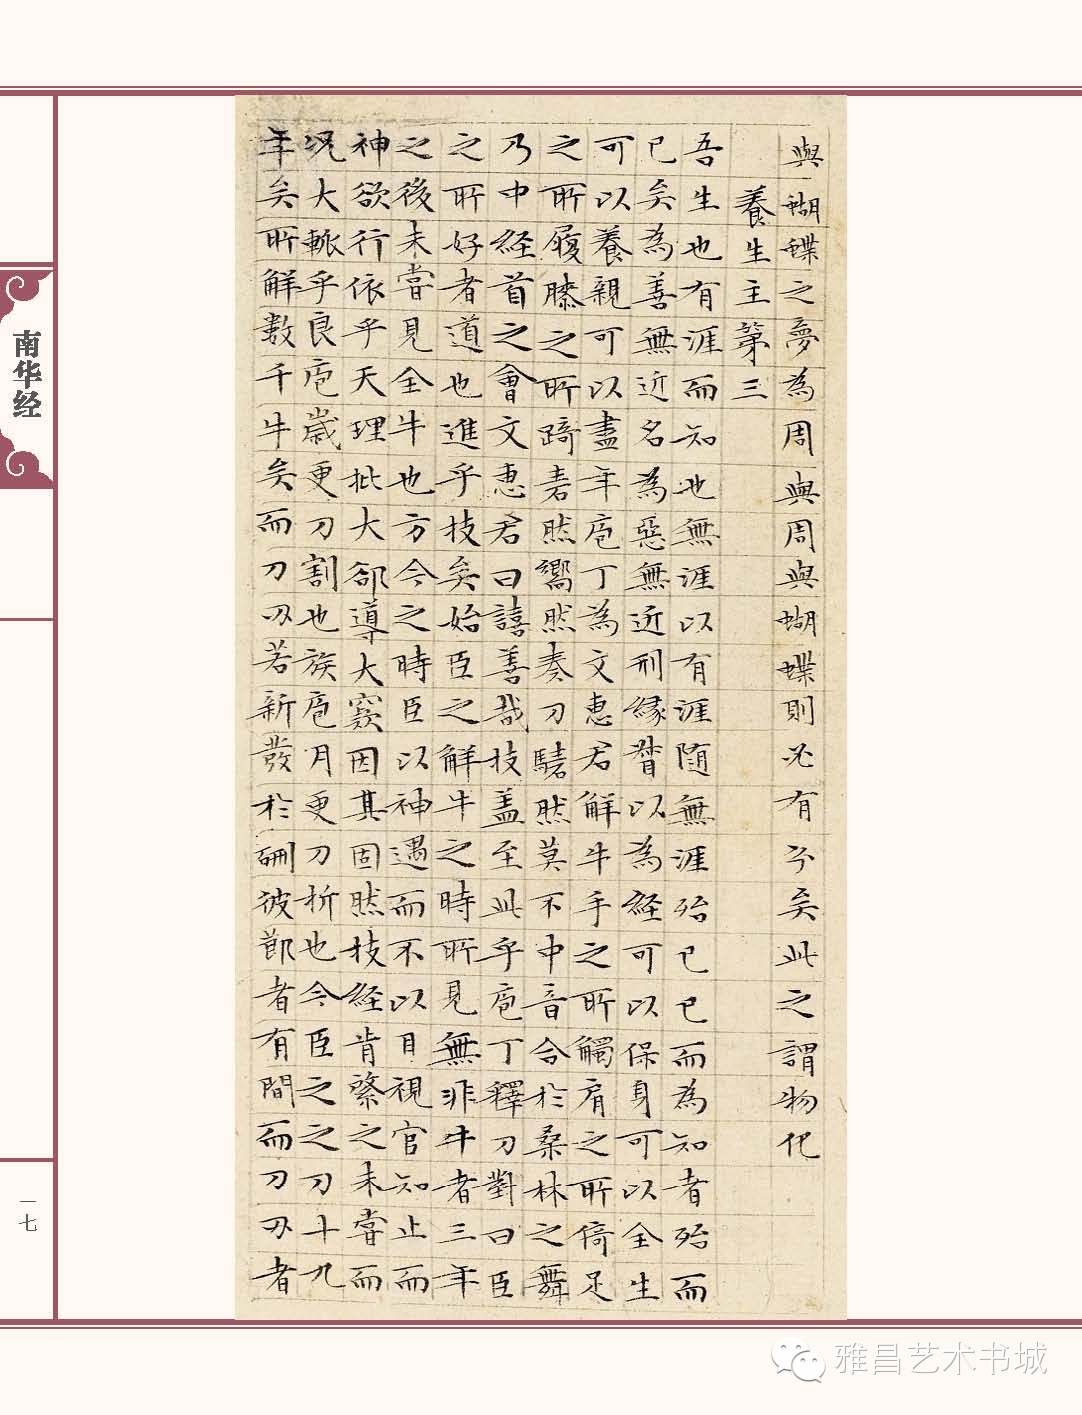 與蝴蝶之夢為周與周與蝴蝶則必有分矣此之謂物化
養生主第三
吾生也有涯而知也無涯以有涯隨無涯殆已已而為知者殆而
已矣為善無近名為惡無近刑縁督以為経可以保身可以全生
可以養親可以盡年庖丁為文惠君解牛手之所觸肩之所倚足
之所履膝之所踦砉然嚮然奏刀騞然莫不中音合於桑林之舞
乃中経首之會文惠君曰譆善哉技盖至此乎庖丁釋刀對曰臣
之所好者道也進乎技矣始臣之解牛之時所見無非牛者三年
之後未嘗見全牛也方今之時臣以神遇而不以目視官知止而
神欲行依乎天理批大郤導大窾因其固然技経肯綮之未嘗而
況大軱乎良庖歳更刀割也族庖月更刀折也今臣之之刀十九
年矣所解數千牛矣而刀刃若新發於硎彼節者有間而刀刃者
南华经
一七
雅昌艺术书城